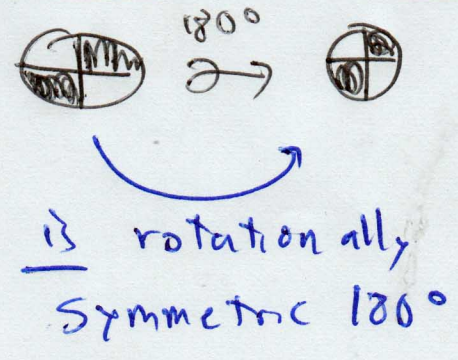 180°
is rotationally
symmetric 180°